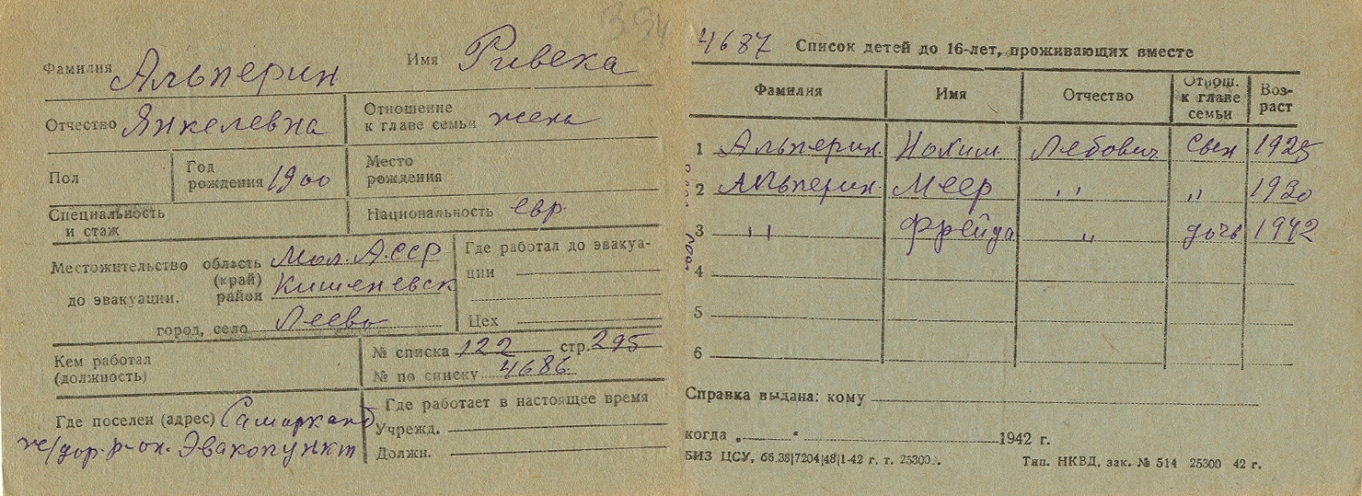 394
Фамилия Альперин Имя Ривека
Отчество Янкелевна Отношение к главе семьи жена
Пол Год рождения 1900 Место рождения
Специальность и стаж Национальность евр.
Местожительство до эвакуации. область (край) Мол. АССР
район Кишеневск
город, село Леево
Где работал до эвакуации
Цех
Кем работал (должность)
№ списка 122 стр. 295
№ по списку 4686
Где поселен (адрес) Самарканд
ж/дор. р-он. Эвакопункт
Где работает в настоящее время
Учрежд.
Должн.
4687 Список детей до 16-лет, проживающих вместе
Фамилия Имя Отчество Отнош. к главе семьи Возраст
1 Альперин Нохим Лебович сын 1925
2 Альперин Меер " " 1930
3 " Фрейда " дочь 1942
4
5
6
Справка выдана: кому
когда „ “ 1942 г.
БИЗ ЦСУ, 66.38|7204|48|1-42 г. т. 25300. Тип. НКВД, зак. № 514 25300 42 г.